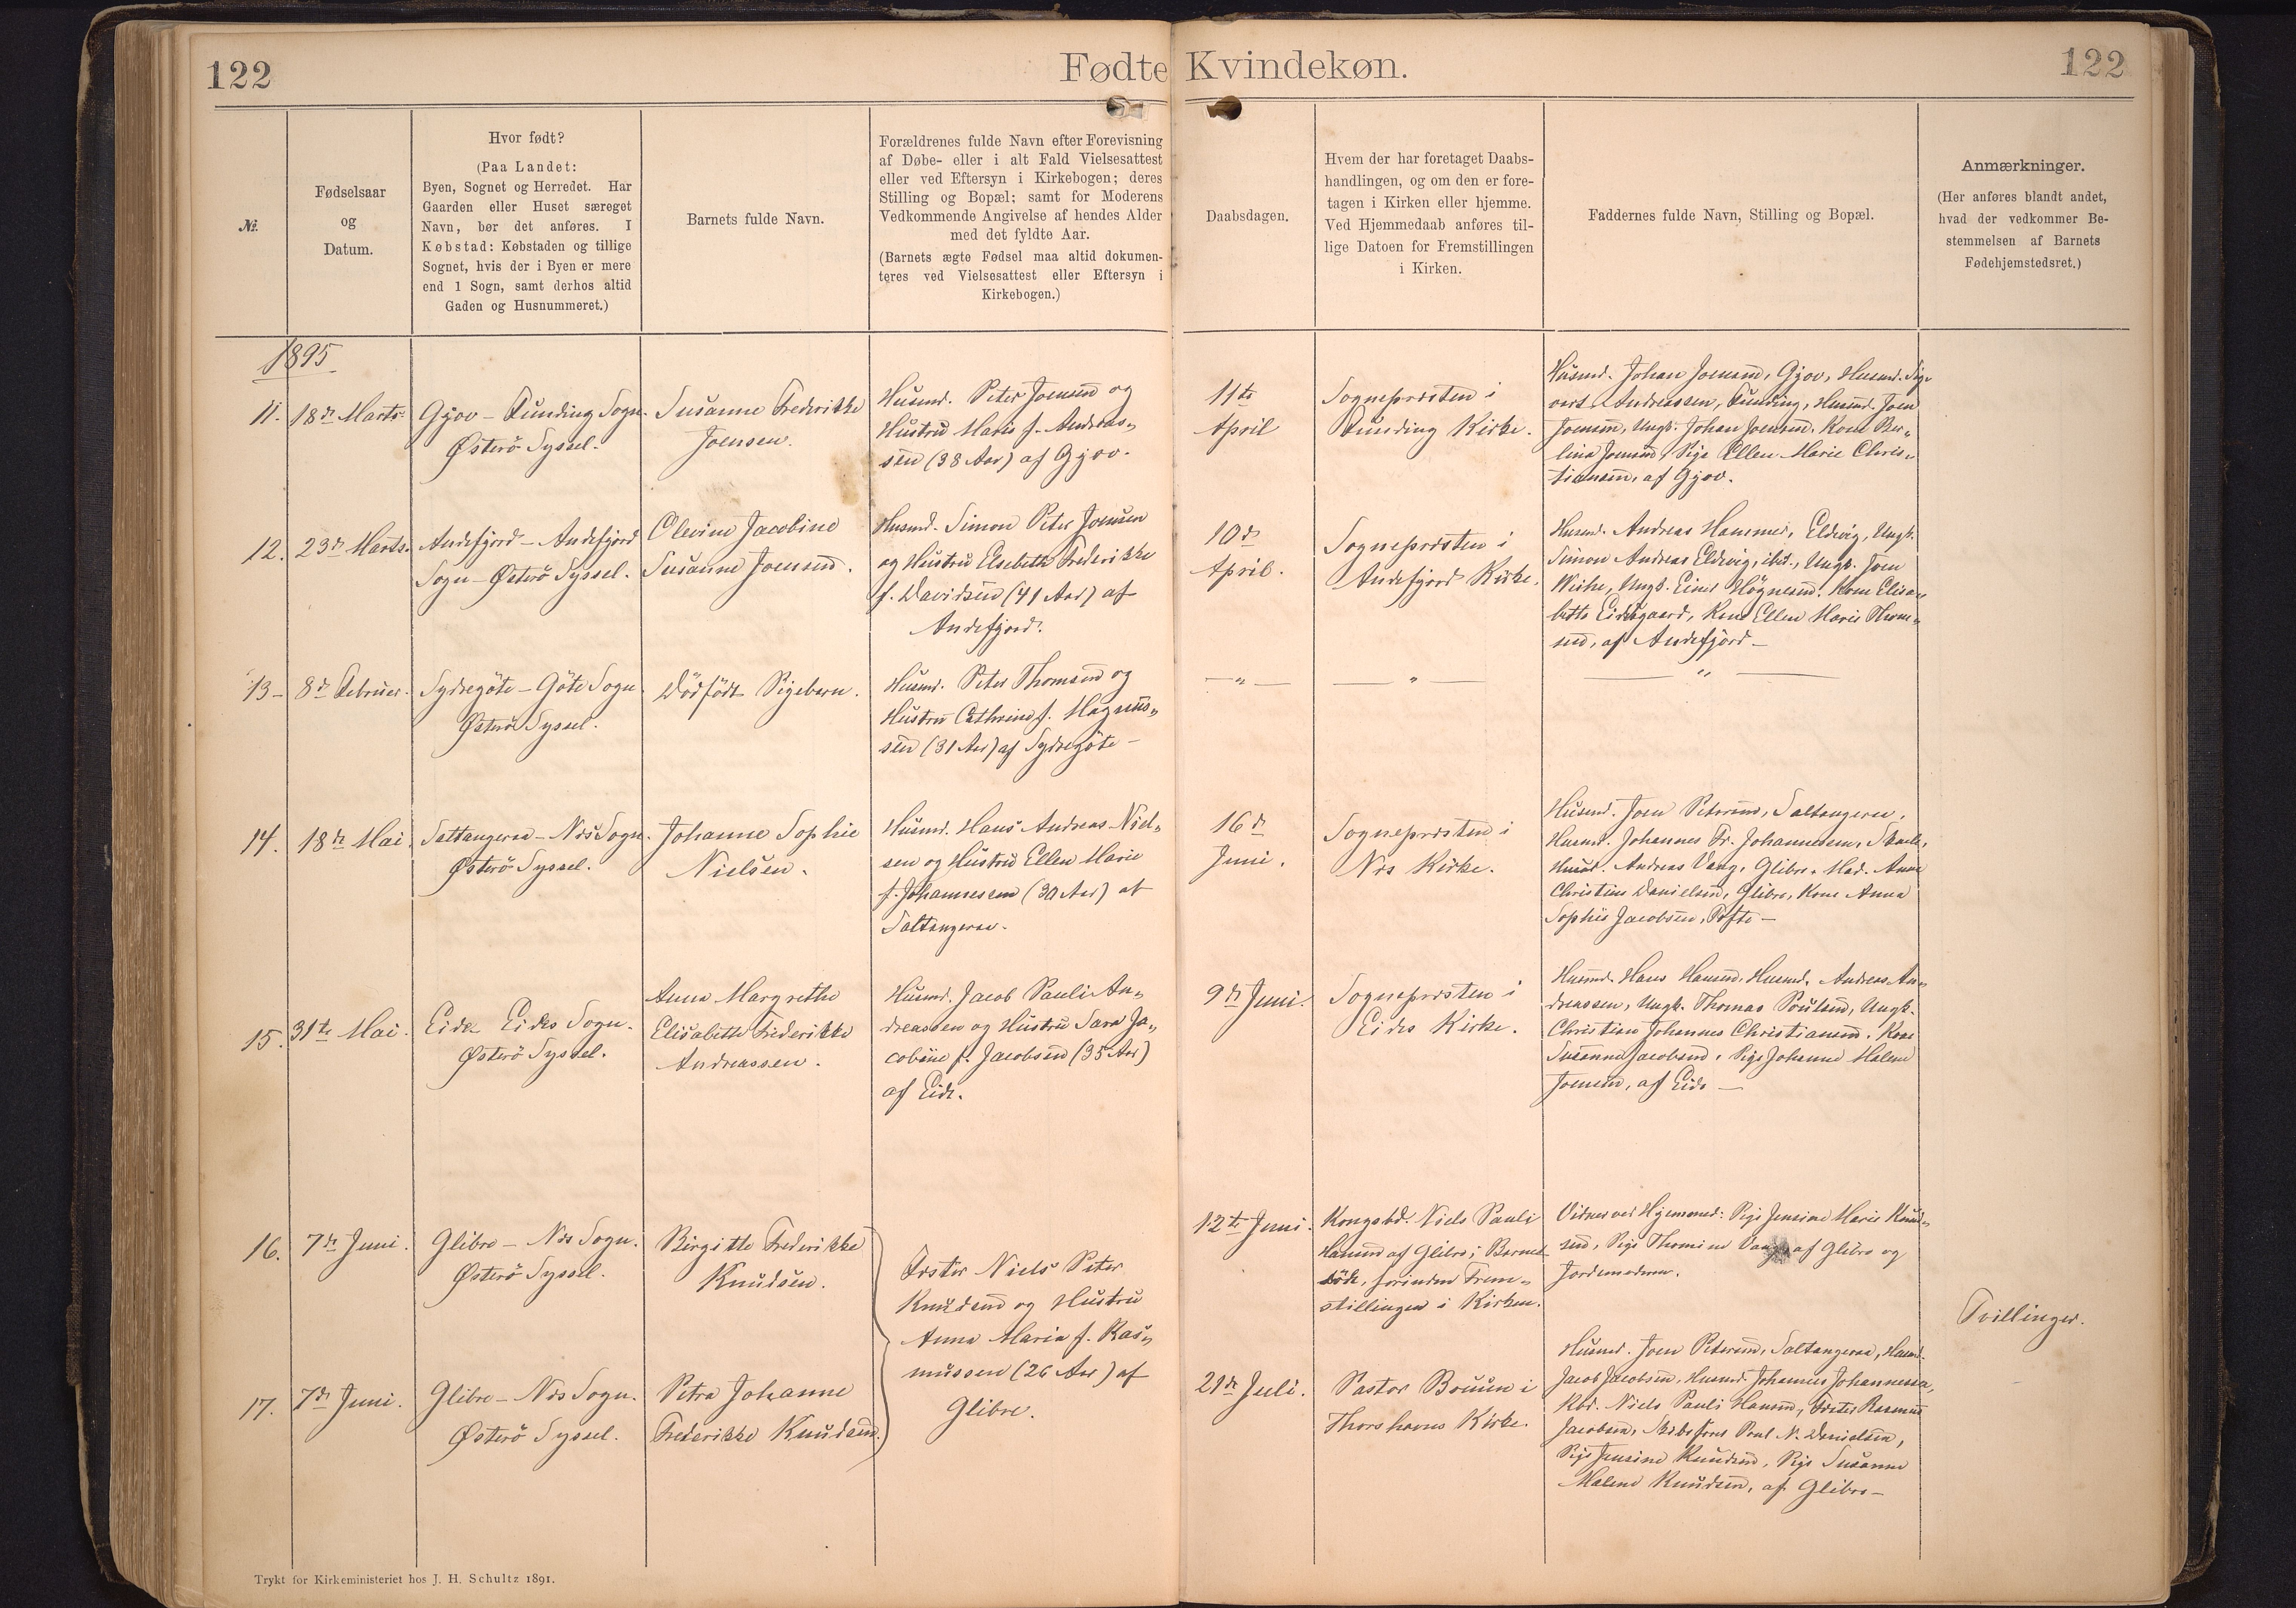 122
Fødte Kvindekøn.
122
№.
Fødselsaar
og
Datum.
Hvor født?
(Paa Landet:
Byen, Sognet og Herredet. Har
Gaarden eller Huset særeget
Navn, bør det anføres. I
Købstad: Købstaden og tillige
Sognet, hvis der i Byen er mere
end 1 Sogn, samt derhos altid
Gaden og Husnummeret.)
Barnets fulde Navn.
Forældrenes fulde Navn efter Forevisning
af Døbe- eller i alt Fald Vielsesattest
eller ved Eftersyn i Kirkebogen; deres
Stilling og Bopæl; samt for Moderens
Vedkommende Angivelse af hendes Alder
med det fyldte Aar.
(Barnets ægte Fødsel maa altid dokumen-
teres ved Vielsesattest eller Eftersyn i
Kirkebogen.)
Daabsdagen.
Hvem der har foretaget Daabs-
handlingen, og om den er fore-
tagen i Kirken eller hjemme.
Ved Hjemmedaab anføres til-
lige Datoen for Fremstillingen
i Kirken.
Faddernes fulde Navn, Stilling og Bopæl.
Anmærkninger.
(Her anføres blandt andet,
hvad der vedkommer Be-
stemmelsen af Barnets
Fødehjemstedsret.)
1895
11.
18de Marts
Gjov - Funding Sogn.
Østerö Syssel.
Susanne Frederikke
Joensen.
Husmd. Peter Joensen og
Hustru Maria f. Andreas„
sen (38 Aar) af Gjov.
11te
April
Sognepræsten i
Funding Kirke.
Husmd. Johan Joensen, Gjov, Husmd. Sig„
vert Andreassen, Funding, Husmd. Joen
Joensen, Ungk. Johan Joensen, Kone Ber„
lina Joensen, Pige Ellen Marie Chris„
tiansen, af Gjov.
12.
23de Marts.
Andefjord - Andefjord
Sogn - Østerö Syssel.
Olevine Jacobine
Susanne Joensen.
Husmd. Simon Peter Joensen
og Hustru Elsebeth Frederikke
f. Davidsen (41 Aar) af
Andefjord.
10de
April.
Sognepræsten i
Andefjord Kirke.
Husmd. Andreas Hammer, Eldevig, Ungk.
Simon Andreas Eldevig, ibid., Ungk. Joen
Weihe, Ungk. Einer Högnesen, Kone Elisa„
beth Eidesgaard, Kone Ellen Marie Thom„
sen, af Andefjord -
13 -
8de Februar.
Sydregöte - Göte Sogn
Østerö Syssel.
Dödfödt Pigebarn.
Husmd. Peter Thomsen og
Hustru Cathrine f. Magnus„
sen (31 Aar) af Sydregöte -
- „ -
- „ -
- „ -
14.
18de Mai.
Saltangeraa - Næs Sogn.
Østerö Syssel.
Johanne Sophie
Nielsen.
Husmd. Hans Andreas Niel„
sen og Hustru Ellen Marie
f. Johannessen (30 Aar) af
Saltangeraa.
16de
Juni.
Sognepræsten i
Næs Kirke.
Husmd. Joen Petersen, Saltangeraa,
Husmd. Johannes Fr. Johannesen,
Husmd. Andreas Vang, Glibre, Mad. Anne
Christine Danielsen, Glibre, Kone Anna
Sophie Jacobsen, Tofte -
15.
31te Mai.
Eide Eides Sogn.
Østerö Syssel.
Anna Margrethe
Elisabeth Frederikke
Andreassen.
Husmd. Jacob Pauli An„
dreassen og Hustru Sara Ja„
cobine f. Jacobsen (35 Aar)
af Eide.
9de Juni.
Sognepræsten i
Eides Kirke.
Husmd. Hans Hansen, Husmd. Andreas An„
dreassen, Ungk. Thomas Poulsen, Ungk.
Christian Johannes Christiansen, Kone
Susanne Jacobsen, Pige Johanne Malene
Joensen, af Eide -
16.
7de Juni.
Glibre - Næs Sogn.
Østerö Syssel.
Birgitte Frederikke
Knudsen.
Fæster Niels Peter
Knudsen og Hustru
Anna Maria f. Ras„
mussen (26 Aar) af
Glibre.
12te Juni.
Kongsbd. Niels Pauli
Hansen af Glibre; Barnet
döde, forinden Frem„
stillingen i Kirken.
Vidner ved Hjemmed: Pige Jensine Marie Knud„
sen, Pige Thomine Vang af Glibre og
Jordemoderen.
Tvillinger.
17.
7de Juni.
Glibre - Næs Sogn.
Østerö Syssel.
Petra Johanne
Frederikke Knudsen.
21de Juli.
Pastor Bruun i
Thorshavns Kirke.
Husmd. Joen Petersen, Saltangeraa, Husmd.
Jacob Jacobsen, Husmd. Johannes Johannessen,
Kbd. Niels Pauli Hansen, Fæster Rasmus
Jacobsen, Skibsförer Poul N. Danielsen,
Pige Jensine Knudsen, Pige Susanne
Malene Knudsen, af Glibre -
Trykt for Kirkeministeriet hos J. H. Schultz 1891.